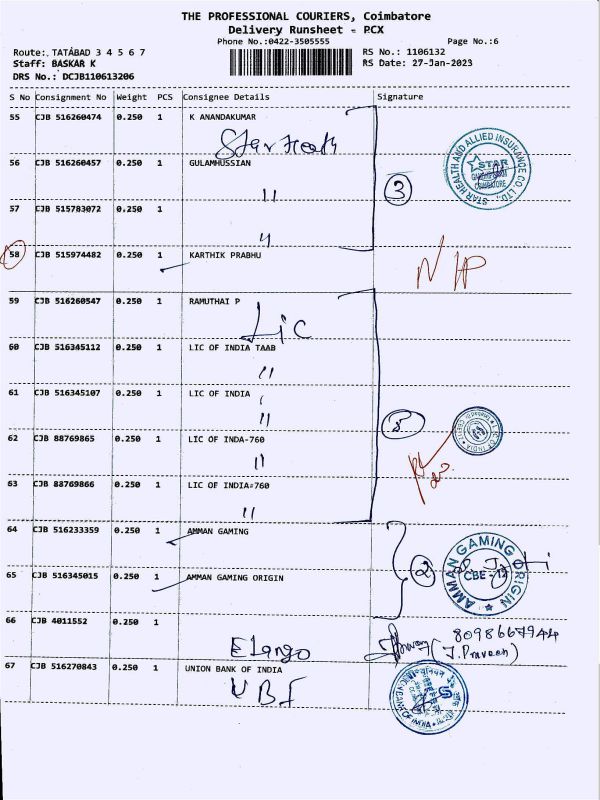 THE PROFESSIONAL COURIERS, Coimbatore
Delivery Runsheet - PCX
Phone No.:0422-3505555
Page No.:6
Route: TATABAD 3 4 5 6 7
RS No.: 1106132
Staff: BASKAR K
RS Date: 27-Jan-2023
DRS No.: DCJB110613206
S No Consignment No Weight PCS Consignee Details Signature
55 CJB 516260474 0.250 1 K ANANDAKUMAR
Star Health
STAR HEALTH AND ALLIED INSURANCE CO. LTD.
STAR
COIMBATORE
56 CJB 516260457 0.250 1 GULAMHUSSIAN
"
3
57 CJB 515783072 0.250 1
"
58 CJB 515974482 0.250 1 KARTHIK PRABHU
59 CJB 516260547 0.250 1 RAMUTHAI P
LIC
60 CJB 516345112 0.250 1 LIC OF INDIA TAAB
"
61 CJB 516345107 0.250 1 LIC OF INDIA
"
LIC OF INDIA
62 CJB 88769865 0.250 1 LIC OF INDA-760
"
63 CJB 88769866 0.250 1 LIC OF INDIA=760
"
64 CJB 516233359 0.250 1 AMMAN GAMING
AMMAN GAMING ORIGIN
CBE - 12
2
65 CJB 516345015 0.250 1 AMMAN GAMING ORIGIN
66 CJB 4011552 0.250 1
Elango
8098667944
(J.Praveen)
67 CJB 516270843 0.250 1 UNION BANK OF INDIA
UBI